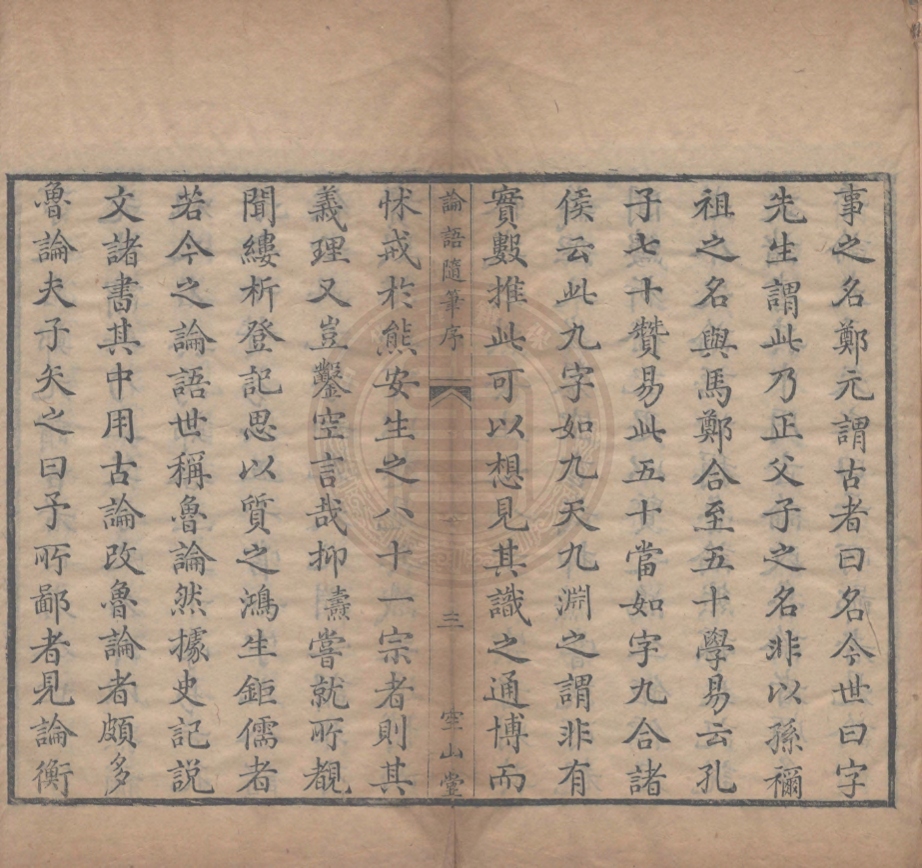 事之名鄭元謂古者曰名今世曰字
先生謂此乃正父子之名非以孫禰
祖之名與馬鄭合至五十學易云孔
子七十贊易此五十當如字九合諸
侯云此九字如九天九淵之謂非有
實數推此可以想見其識之通博而
論語隨筆序
三
空山堂
怵戒於熊安生之八十一宗者則其
義理又豈鑿空言哉抑燾嘗就所覩
聞縷析登記思以質之鴻生鉅儒者
若今之論語世稱魯論然據史記説
文諸書其中用古論改魯論者頗多
魯論夫子矢之曰予所鄙者見論衡